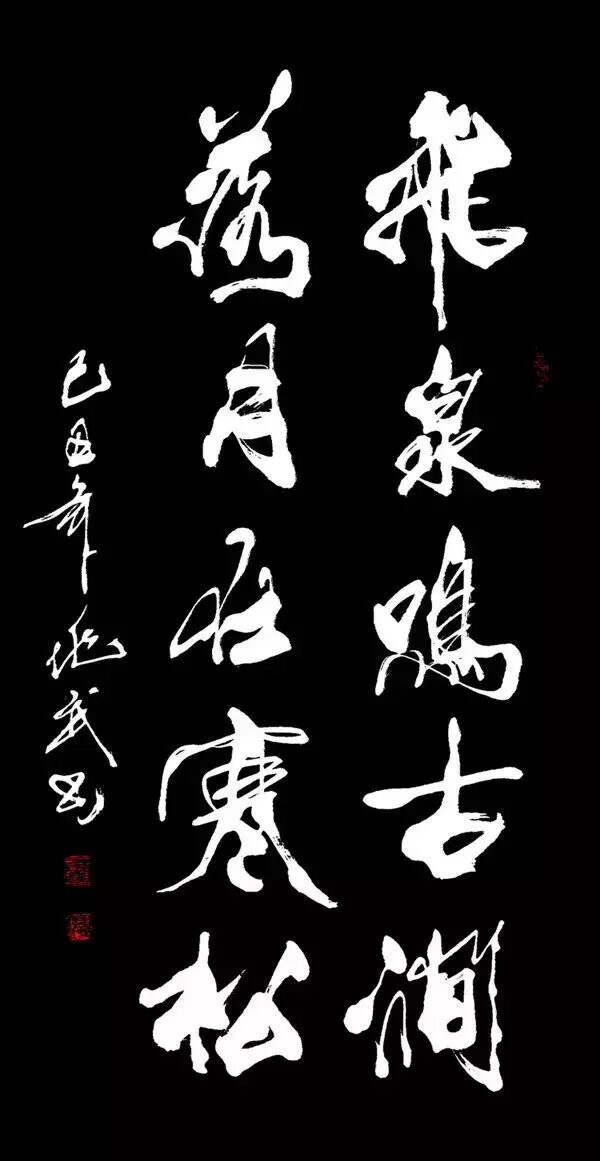 飛泉鳴古澗
落月在寒松
己丑年武書